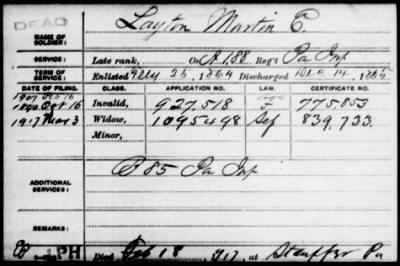 DEAD
NAME OF SOLDIER: Layton Martin C.
SERVICE: Late rank, Co. A. 188 Reg't Pa Inf
TERM OF SERVICE: Enlisted 26, 1864 Discharged Dec. 14, 1865
DATE OF FILING. CLASS. APPLICATION NO. LAW. CERTIFICATE NO.
1907 Feb 16 Age
1890 Oct 16 Invalid, 927.518 775.853
1917 Mar 3 Widow, 1095498 Sep 839,733.
Minor,
ADDITIONAL SERVICES: B 85 Pa Inf
REMARKS:
PH Died Feb 18, 917, at Stauffer Pa